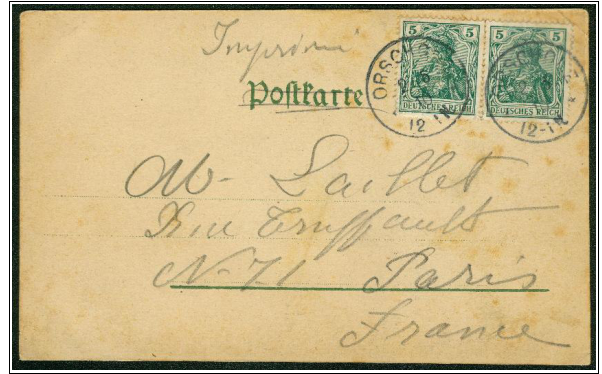 Imprimé
Postkarte
5 5
DEUTSCHES REICH DEUTSCHES REICH
ORSCH
12-1N
12-1N
M. Laillet
Rue Truffault
N-71 Paris
France